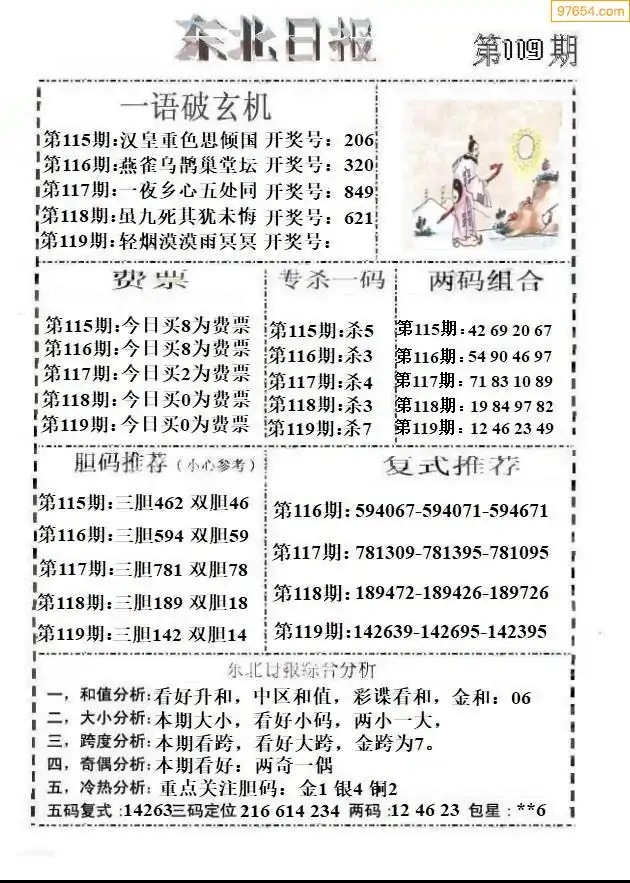 97654.com
东北日报 第119期
一语破玄机
第115期:汉皇重色思倾国 开奖号：206
第116期:燕雀乌鹊巢堂坛 开奖号：320
第117期:一夜乡心五处同 开奖号：849
第118期:虽九死其犹未悔 开奖号：621
第119期:轻烟漠漠雨冥冥 开奖号：
费票
第115期:今日买8为费票
第116期:今日买8为费票
第117期:今日买2为费票
第118期:今日买0为费票
第119期:今日买0为费票
专杀一码
第115期:杀5
第116期:杀3
第117期:杀4
第118期:杀3
第119期:杀7
两码组合
第115期：42 69 20 67
第116期：54 90 46 97
第117期：71 83 10 89
第118期：19 84 97 82
第119期：12 46 23 49
胆码推荐（小心参考）
第115期:三胆462 双胆46
第116期:三胆594 双胆59
第117期:三胆781 双胆78
第118期:三胆189 双胆18
第119期:三胆142 双胆14
复式推荐
第116期:594067-594071-594671
第117期:781309-781395-781095
第118期:189472-189426-189726
第119期:142639-142695-142395
东北日报综合分析
一，和值分析:看好升和，中区和值，彩谍看和，金和：06
二，大小分析:本期大小，看好小码，两小一大，
三，跨度分析:本期看跨，看好大跨，金跨为7。
四，奇偶分析:本期看好：两奇一偶
五，冷热分析:重点关注胆码：金1 银4 铜2
五码复式:14263三码定位216 614 234 两码:12 46 23 包星：**6